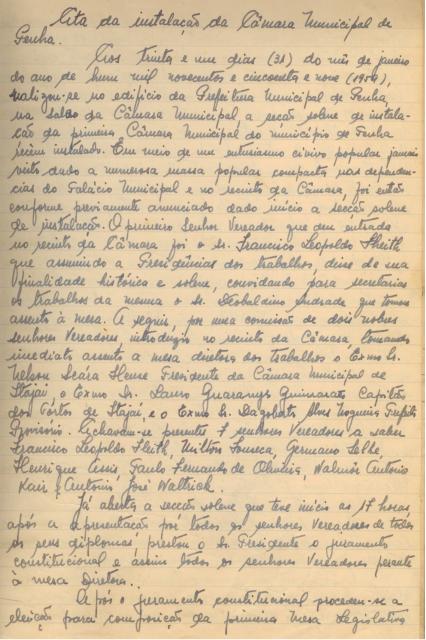 Ata da instalação da Câmara Municipal de
Penha.
Aos trinta e um dias (31) do mês de janeiro
do ano de hum mil novecentos e cincoenta e nove (1959),
realizou-se no edificio da Prefeitura Municipal de Penha,
na salão da Câmara Municipal, a secção solene de instala-
ção da primeira Câmara Municipal do município de Penha
recem instalado. Em meio de um entusiasmo civico popular jamais
visto dado a numerosa massa popular compacta nas dependen-
cias do Palácio Municipal e no recinto da Câmara, foi então
conforme previamente anunciado dado início a secção solene
de instalação. O primeiro Senhor Vereador que deu entrada
no recinto da Câmara foi o Sr. Francisco Leopoldo Fleith,
que assumindo a Presidências dos trabalhos, disse de sua
finalidade histórica e solene, convidando para secretarias
os trabalhos da mesma o Sr. Deobaldino Andrade que tomou
assento à mesa. A seguir, por uma comissão de dois nobres
senhores Vereadores, introduziu no recinto da Câmara, tomando
imediato assento a mesa diretora dos trabalhos o Exmo Sr.
Nelson Seára Heusi Presidente da Câmara Municipal de
Itajaí o Exmo Sr. Lauro Guaranys Guimarães Capitão
dos Pôrtos de Itajaí, e o Exmo Sr. Dagoberto Alves Nogueira Prefeito
Provisório. Achavam-se presentes 7 senhores Vereadores a saber
Francisco Leopoldo Fleith, Milton Fonseca, Germano
Henrique Assis, Paulo Fernando de Oliveira, Walmôr Antonio
e Antonio José Waltrick.
Já aberta a secção solene que teve início as 17 horas,
após a apresentação por todos os senhores Vereadores de todos
os seus diplomas, prestou o Sr. Presidente o juramento
constitucional e assim todos os senhores Vereadores perante
a mesa Diretora.
Após o juramento constitucional procedeu-se a
eleição para composição da primeira Mesa Legislativa